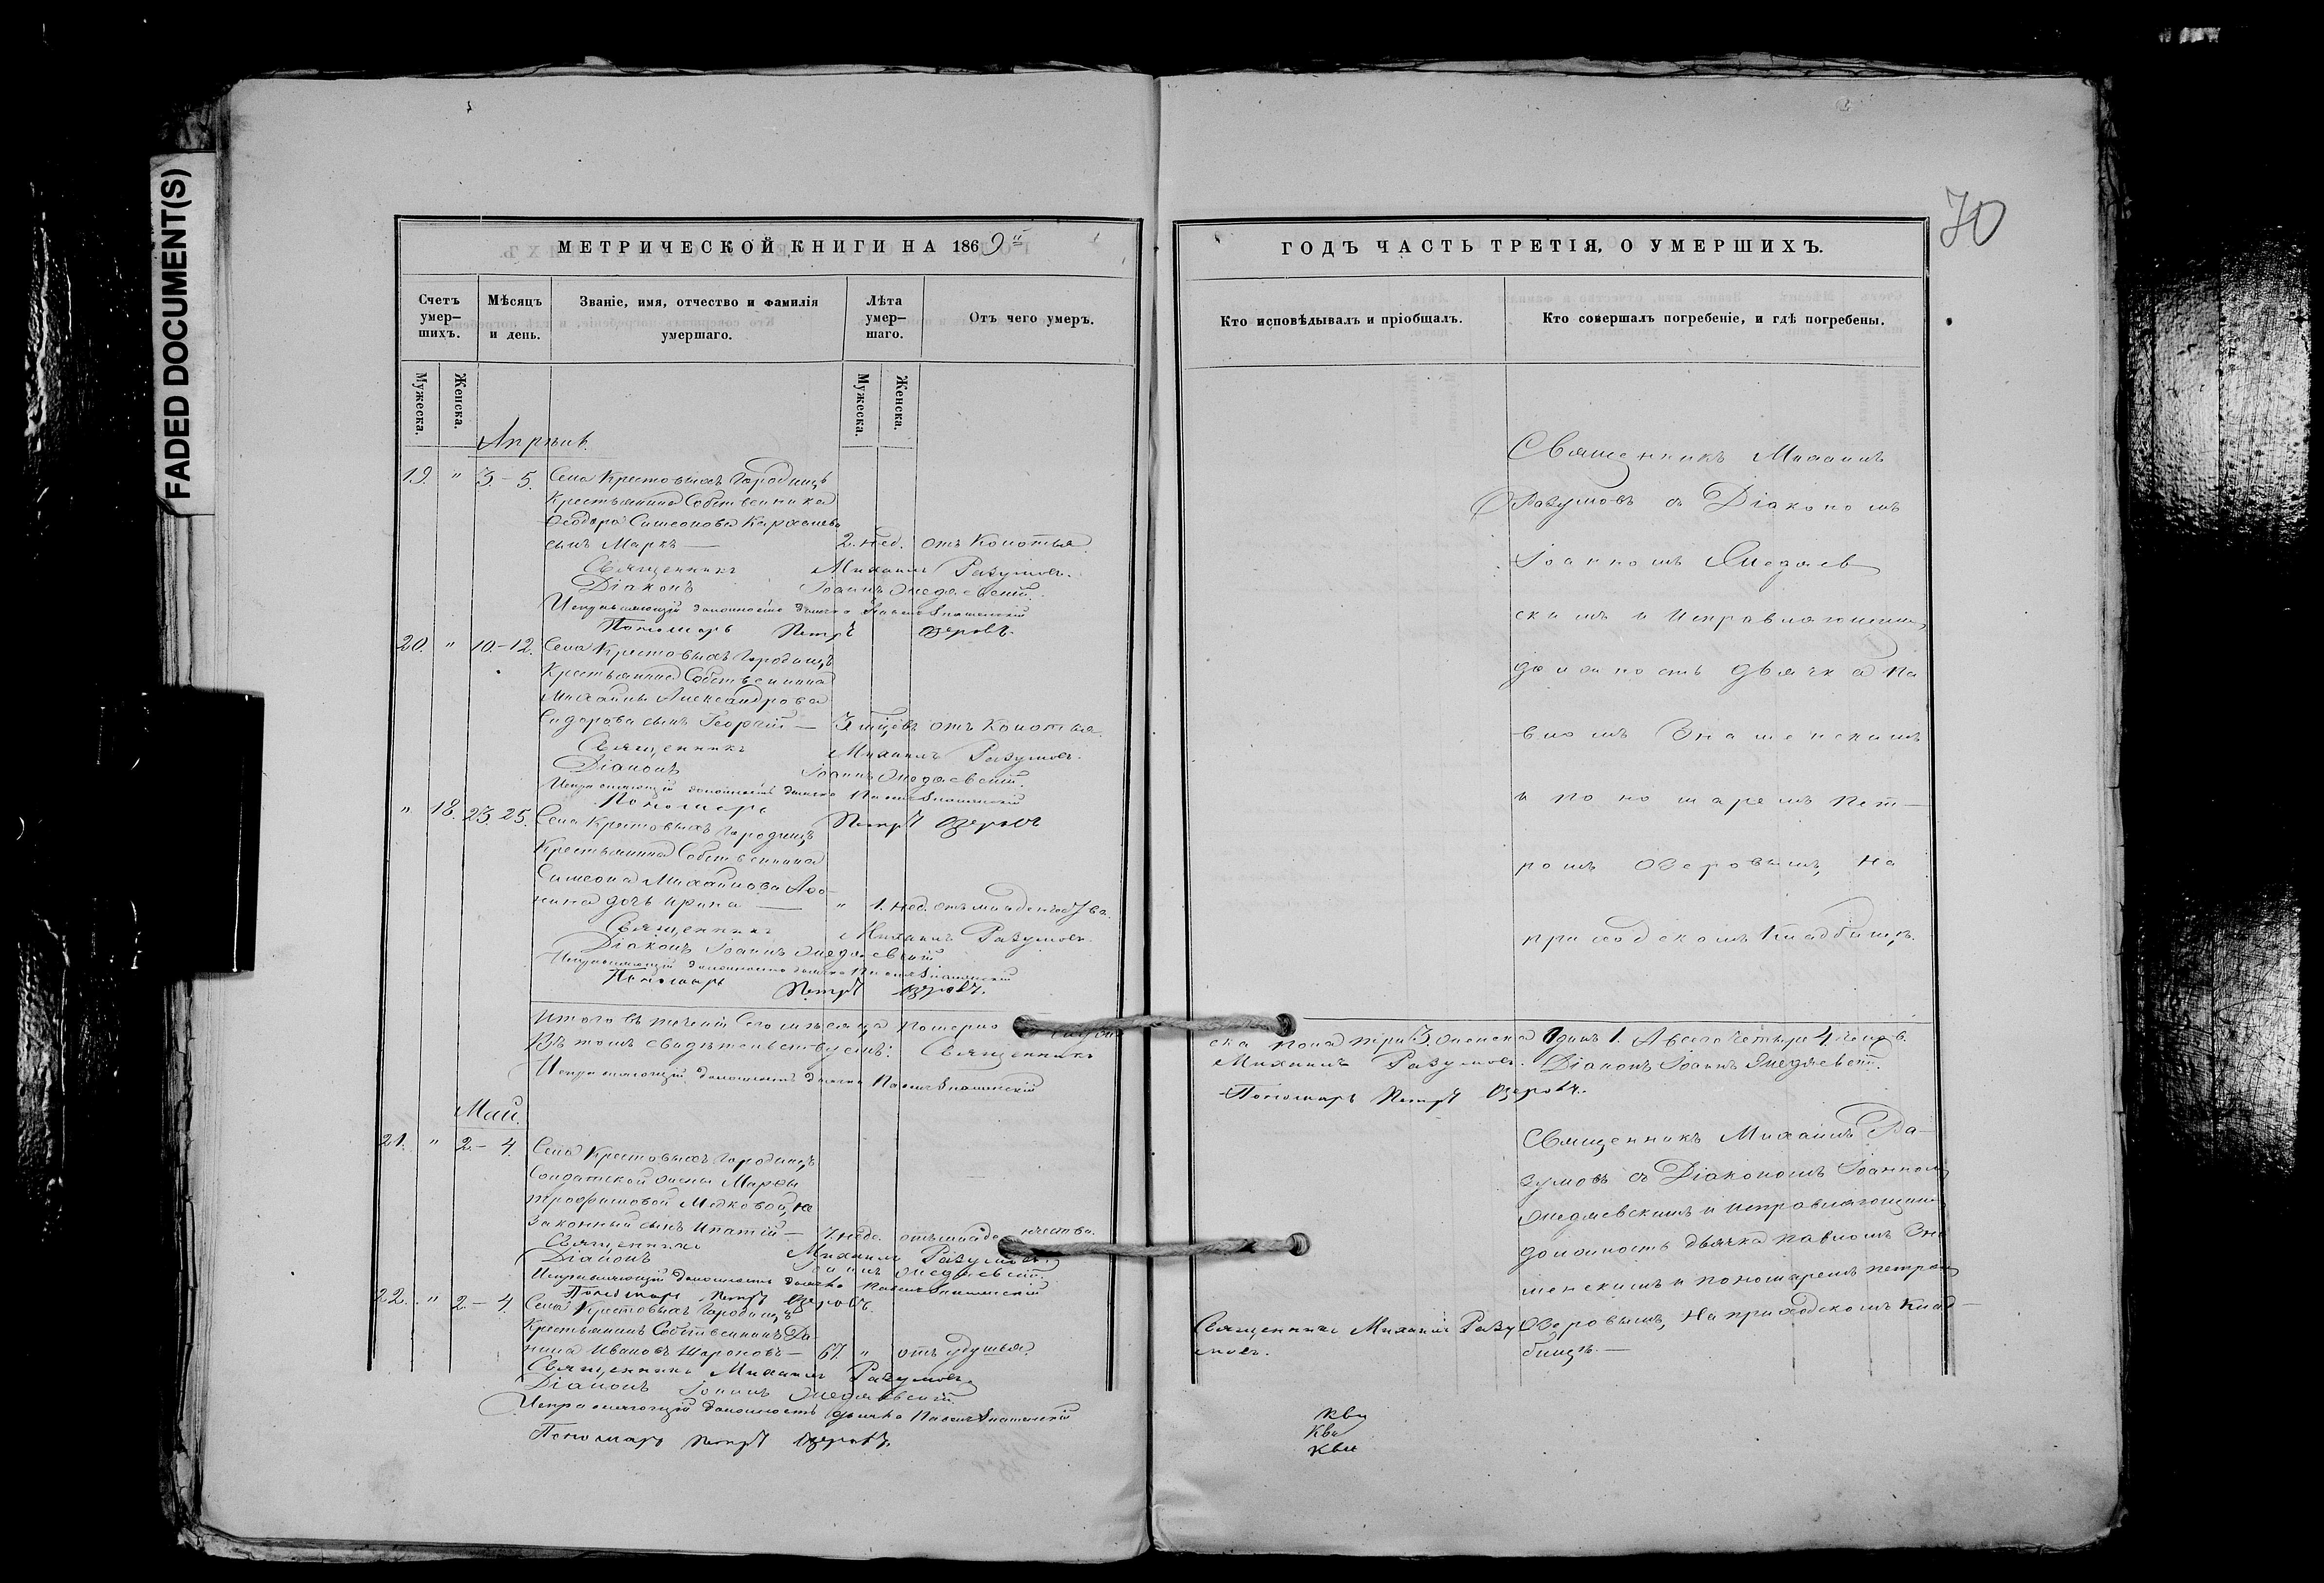 FADED DOCUMENT(S)
70
МЕТРИЧЕСКОЙ КНИГИ НА 1869й
Счетъ умер-шихъ.
Мѣсяцъ и день.
Званіе, имя, отчество и фамилія умершаго.
Лѣта умер-шаго.
Отъ чего умеръ.
Мужеска.
Женска.
Мужеска.
Женска.
Апрѣль.
19. " 3-5. Села Крестовыхъ Городищъ
Крестьянина Собственника
Ѳеодора Симеонова
сынъ Маркъ — 2. нед. отъ Колотья.
Священникъ Михаилъ Разумовъ.
Діаконъ Іоаннъ
Исправляющій должность дьячка Павелъ Знаменскій
Пономарь Петръ Озеровъ.
20. " 10-12. Села Крестовыхъ Городищъ
Крестьянина Собственника
Михаила Александрова
Сидорова сынъ Георгій — 3 мѣсяц. отъ Колотья.
Священникъ Михаилъ Разумовъ.
Діаконъ Іоаннъ
Исправляющій должность дьячка Павелъ Знаменскій
Пономарь
Петръ Озеровъ
" 18. 23. 25. Села Крестовыхъ Городищъ
Крестьянина Собственника
Симеона Михайлова Аѳо-
нина дочь Ирина — " 1. нед. отъ младенчества.
Священникъ Михаилъ Разумовъ.
Діаконъ Іоаннъ
Исправляющій должность дьячка Павелъ Знаменскій
Пономарь Петръ Озеровъ.
Итого въ теченіи Сего мѣсяца померло
Въ томъ свидѣтельствуемъ: Священникъ
Исправляющій должность дьячка Павелъ Знаменскій
Май.
21. " 2-4. Села Крестовыхъ Городищъ
Солдатской жены Марѳы
Трофимовой не
законный сынъ Ипатій — 7. неде. отъ младенчества.
Священникъ Михаилъ Разумовъ
Діаконъ Іоаннъ
Исправляющій должность дьячка Павелъ Знаменскій
Пономарь Петръ Озеровъ.
22. " 2-4. Села Крестовыхъ Городищъ
Крестьянинъ Собственникъ Да-
нила Ивановъ — 67. " отъ удушья.
Священникъ Михаилъ Разумовъ
Діаконъ Іоаннъ
Исправляющій должность дьячка Павелъ Знаменскій
Пономарь Петръ Озеровъ.
ГОДЪ ЧАСТЬ ТРЕТІЯ, О УМЕРШИХЪ.
Кто исповѣдывалъ и пріобщалъ.
Кто совершалъ погребеніе, и гдѣ погребены.
Священникъ Михаилъ
Разумовъ съ Діакономъ
Іоанномъ
скимъ и исправляющимъ
должность дьячка Па
вломъ Знаменскимъ
и пономаремъ Пет-
ромъ Озеровымъ, на
приходскомъ кладбищѣ.
ска пола три 3. женска одинъ 1. А всего четыре 4 челов.
Михаилъ Разумовъ. Діаконъ Іоаннъ
Пономарь Петръ Озеровъ.
Священникъ Михаилъ Ра-
зумовъ съ Діакономъ Іоанномъ
и исправляющимъ
должность дьячка Павломъ Зна
менскимъ и пономаремъ Петромъ
Озеровымъ, на приходскомъ клад-
бищѣ. —
Священникъ Михаилъ Разу
мовъ.